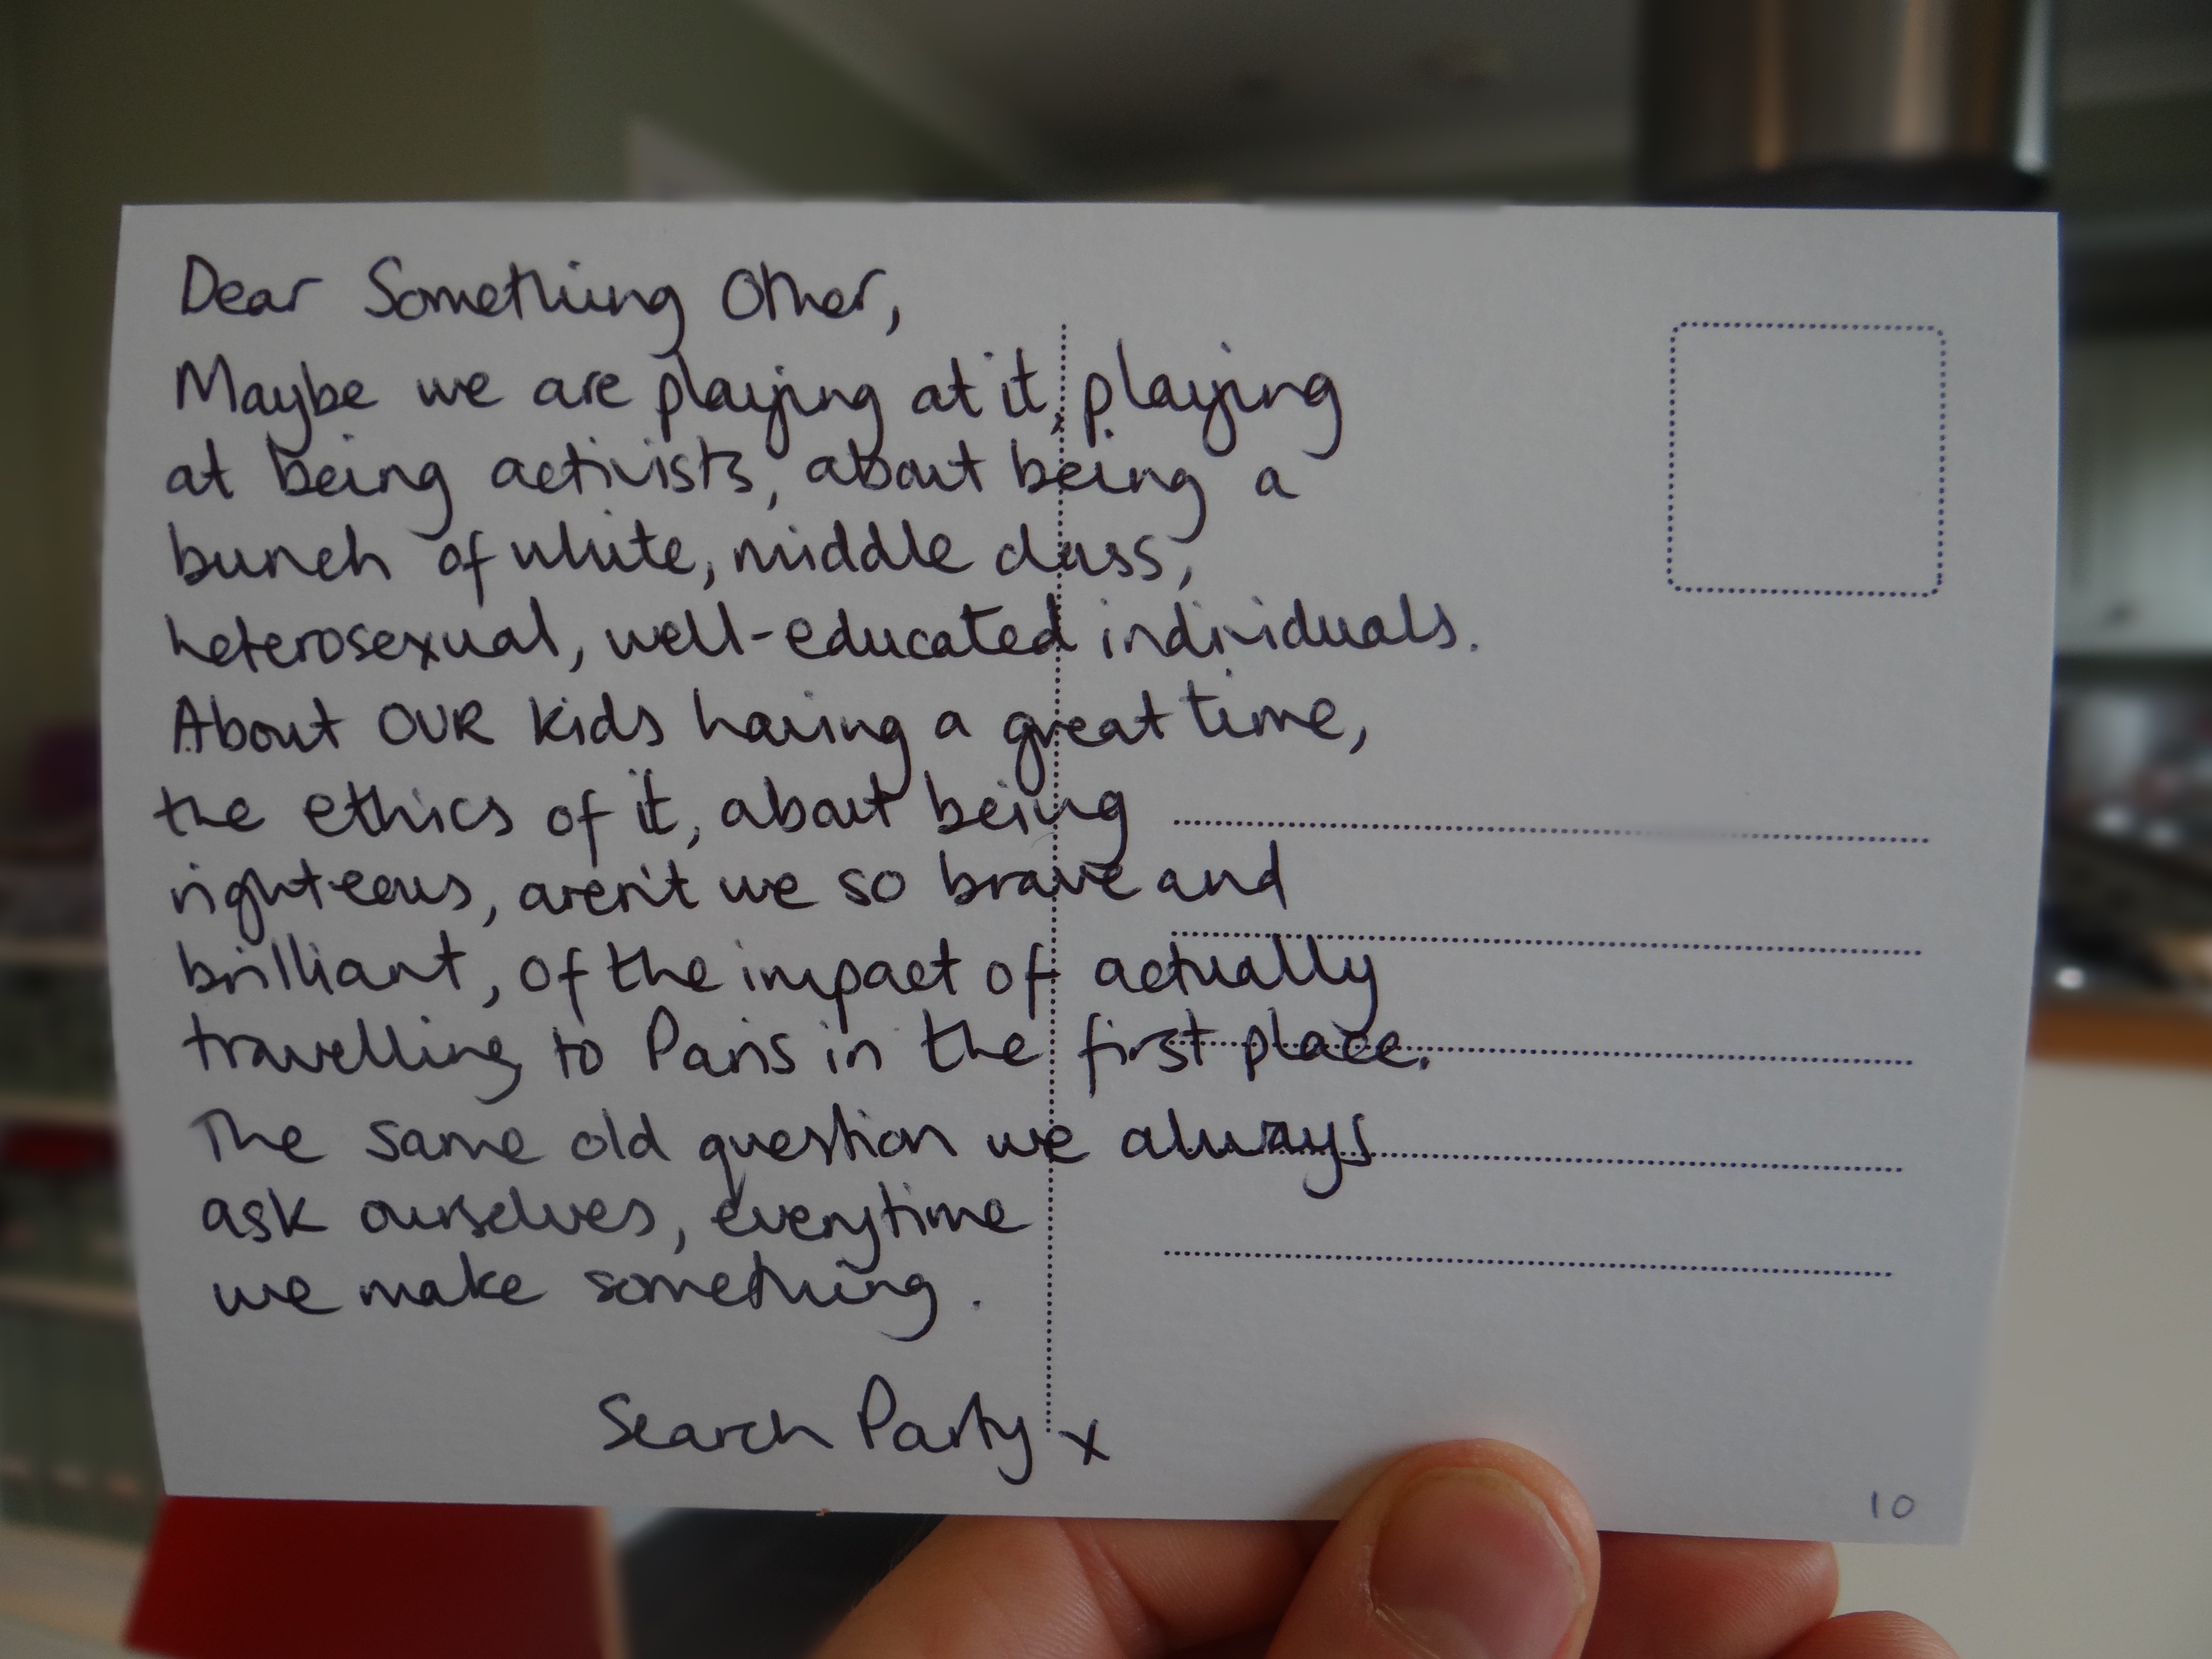 Dear Something Other,
Maybe we are playing at it, playing
at being activists, about being a
bunch of white, middle class,
heterosexual, well-educated individuals.
About OUR kids having a great time,
the ethics of it, about being
righteous, aren't we so brave and
brilliant, of the impact of actually
travelling to Paris in the first place.
The same old question we always
ask ourselves, everytime
we make something.
Search Party x
10